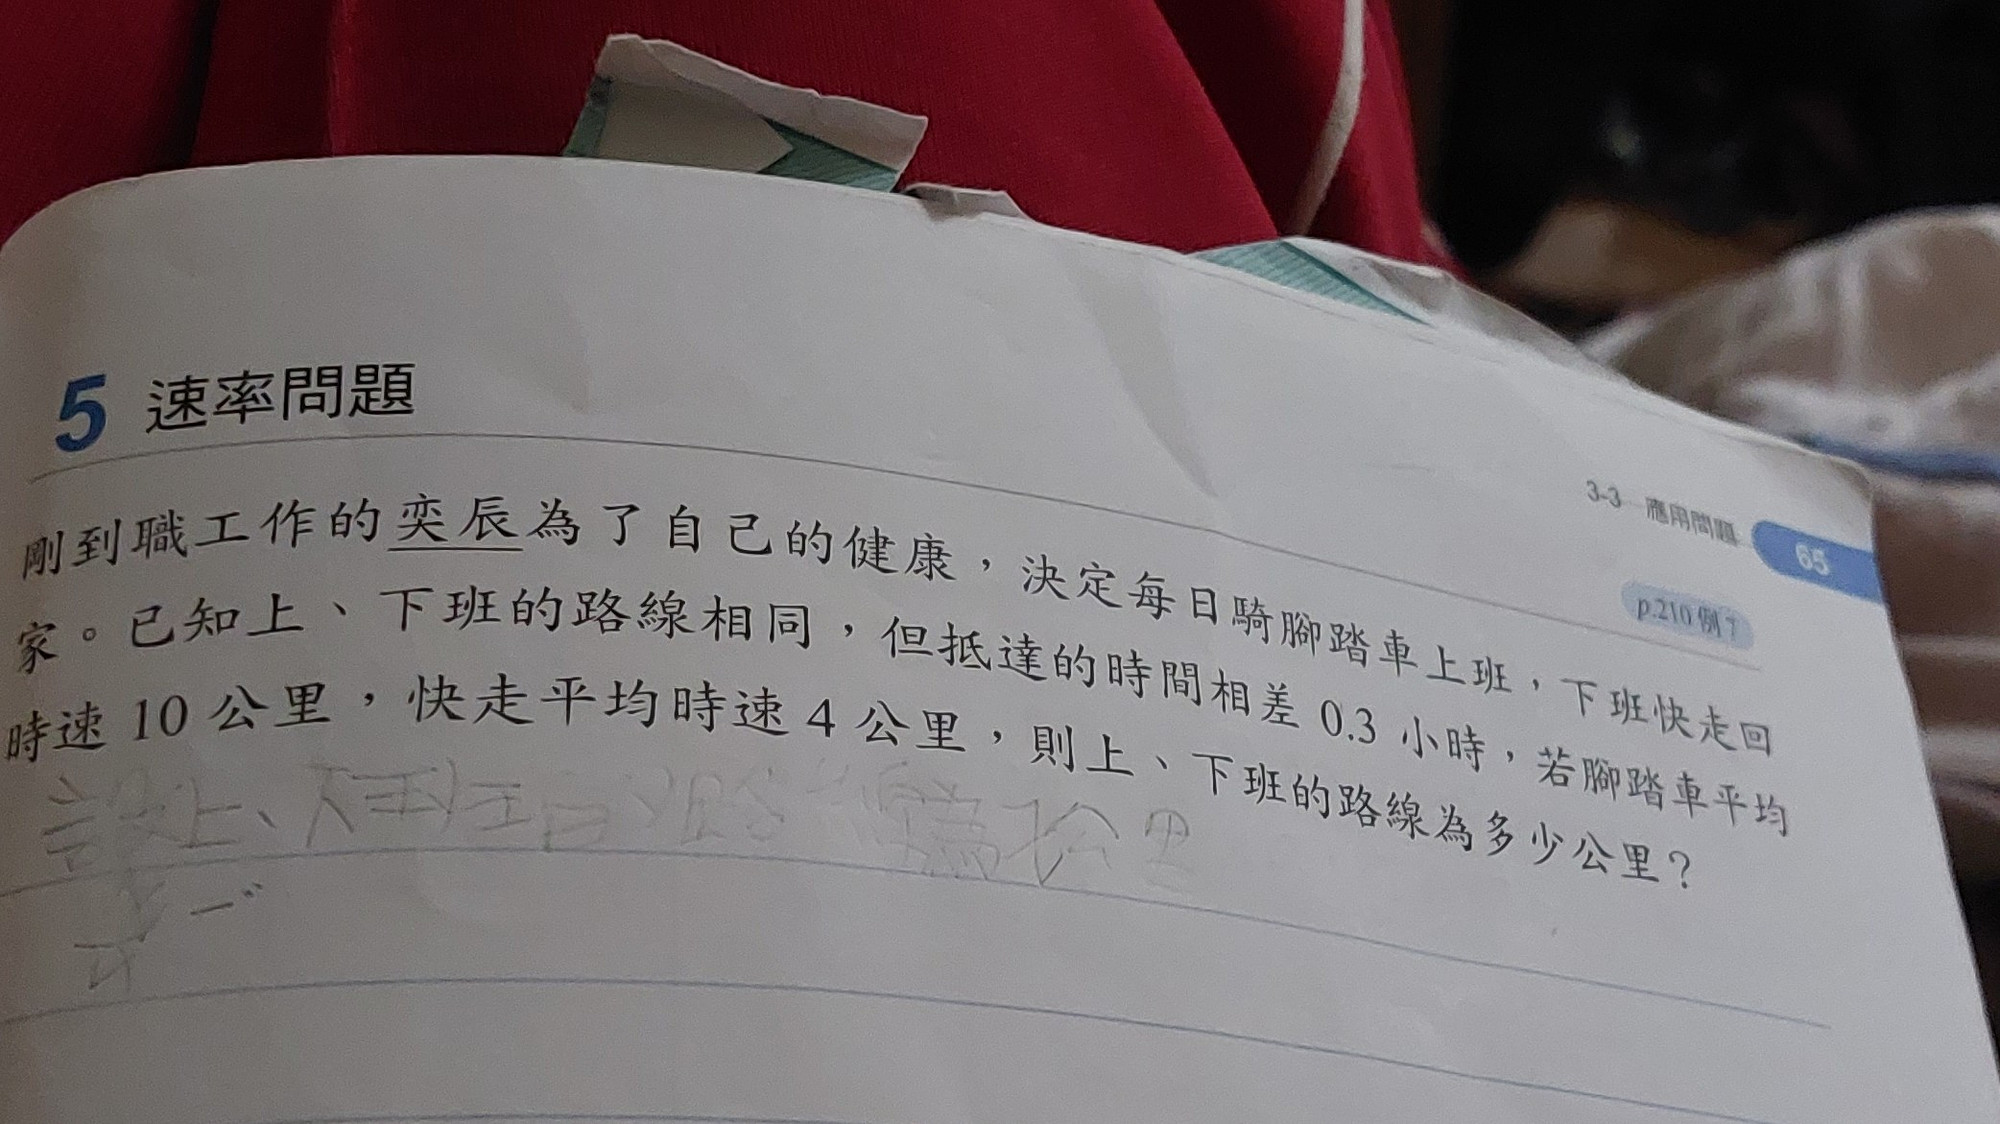 3-3 應用問題 65
5 速率問題
p.210 例7
剛到職工作的奕辰為了自己的健康,決定每日騎腳踏車上班,下班快走回
家。已知上、下班的路線相同,但抵達的時間相差 0.3 小時,若腳踏車平均
時速 10 公里,快走平均時速 4 公里,則上、下班的路線為多少公里?
設上、下班的路線為x公里